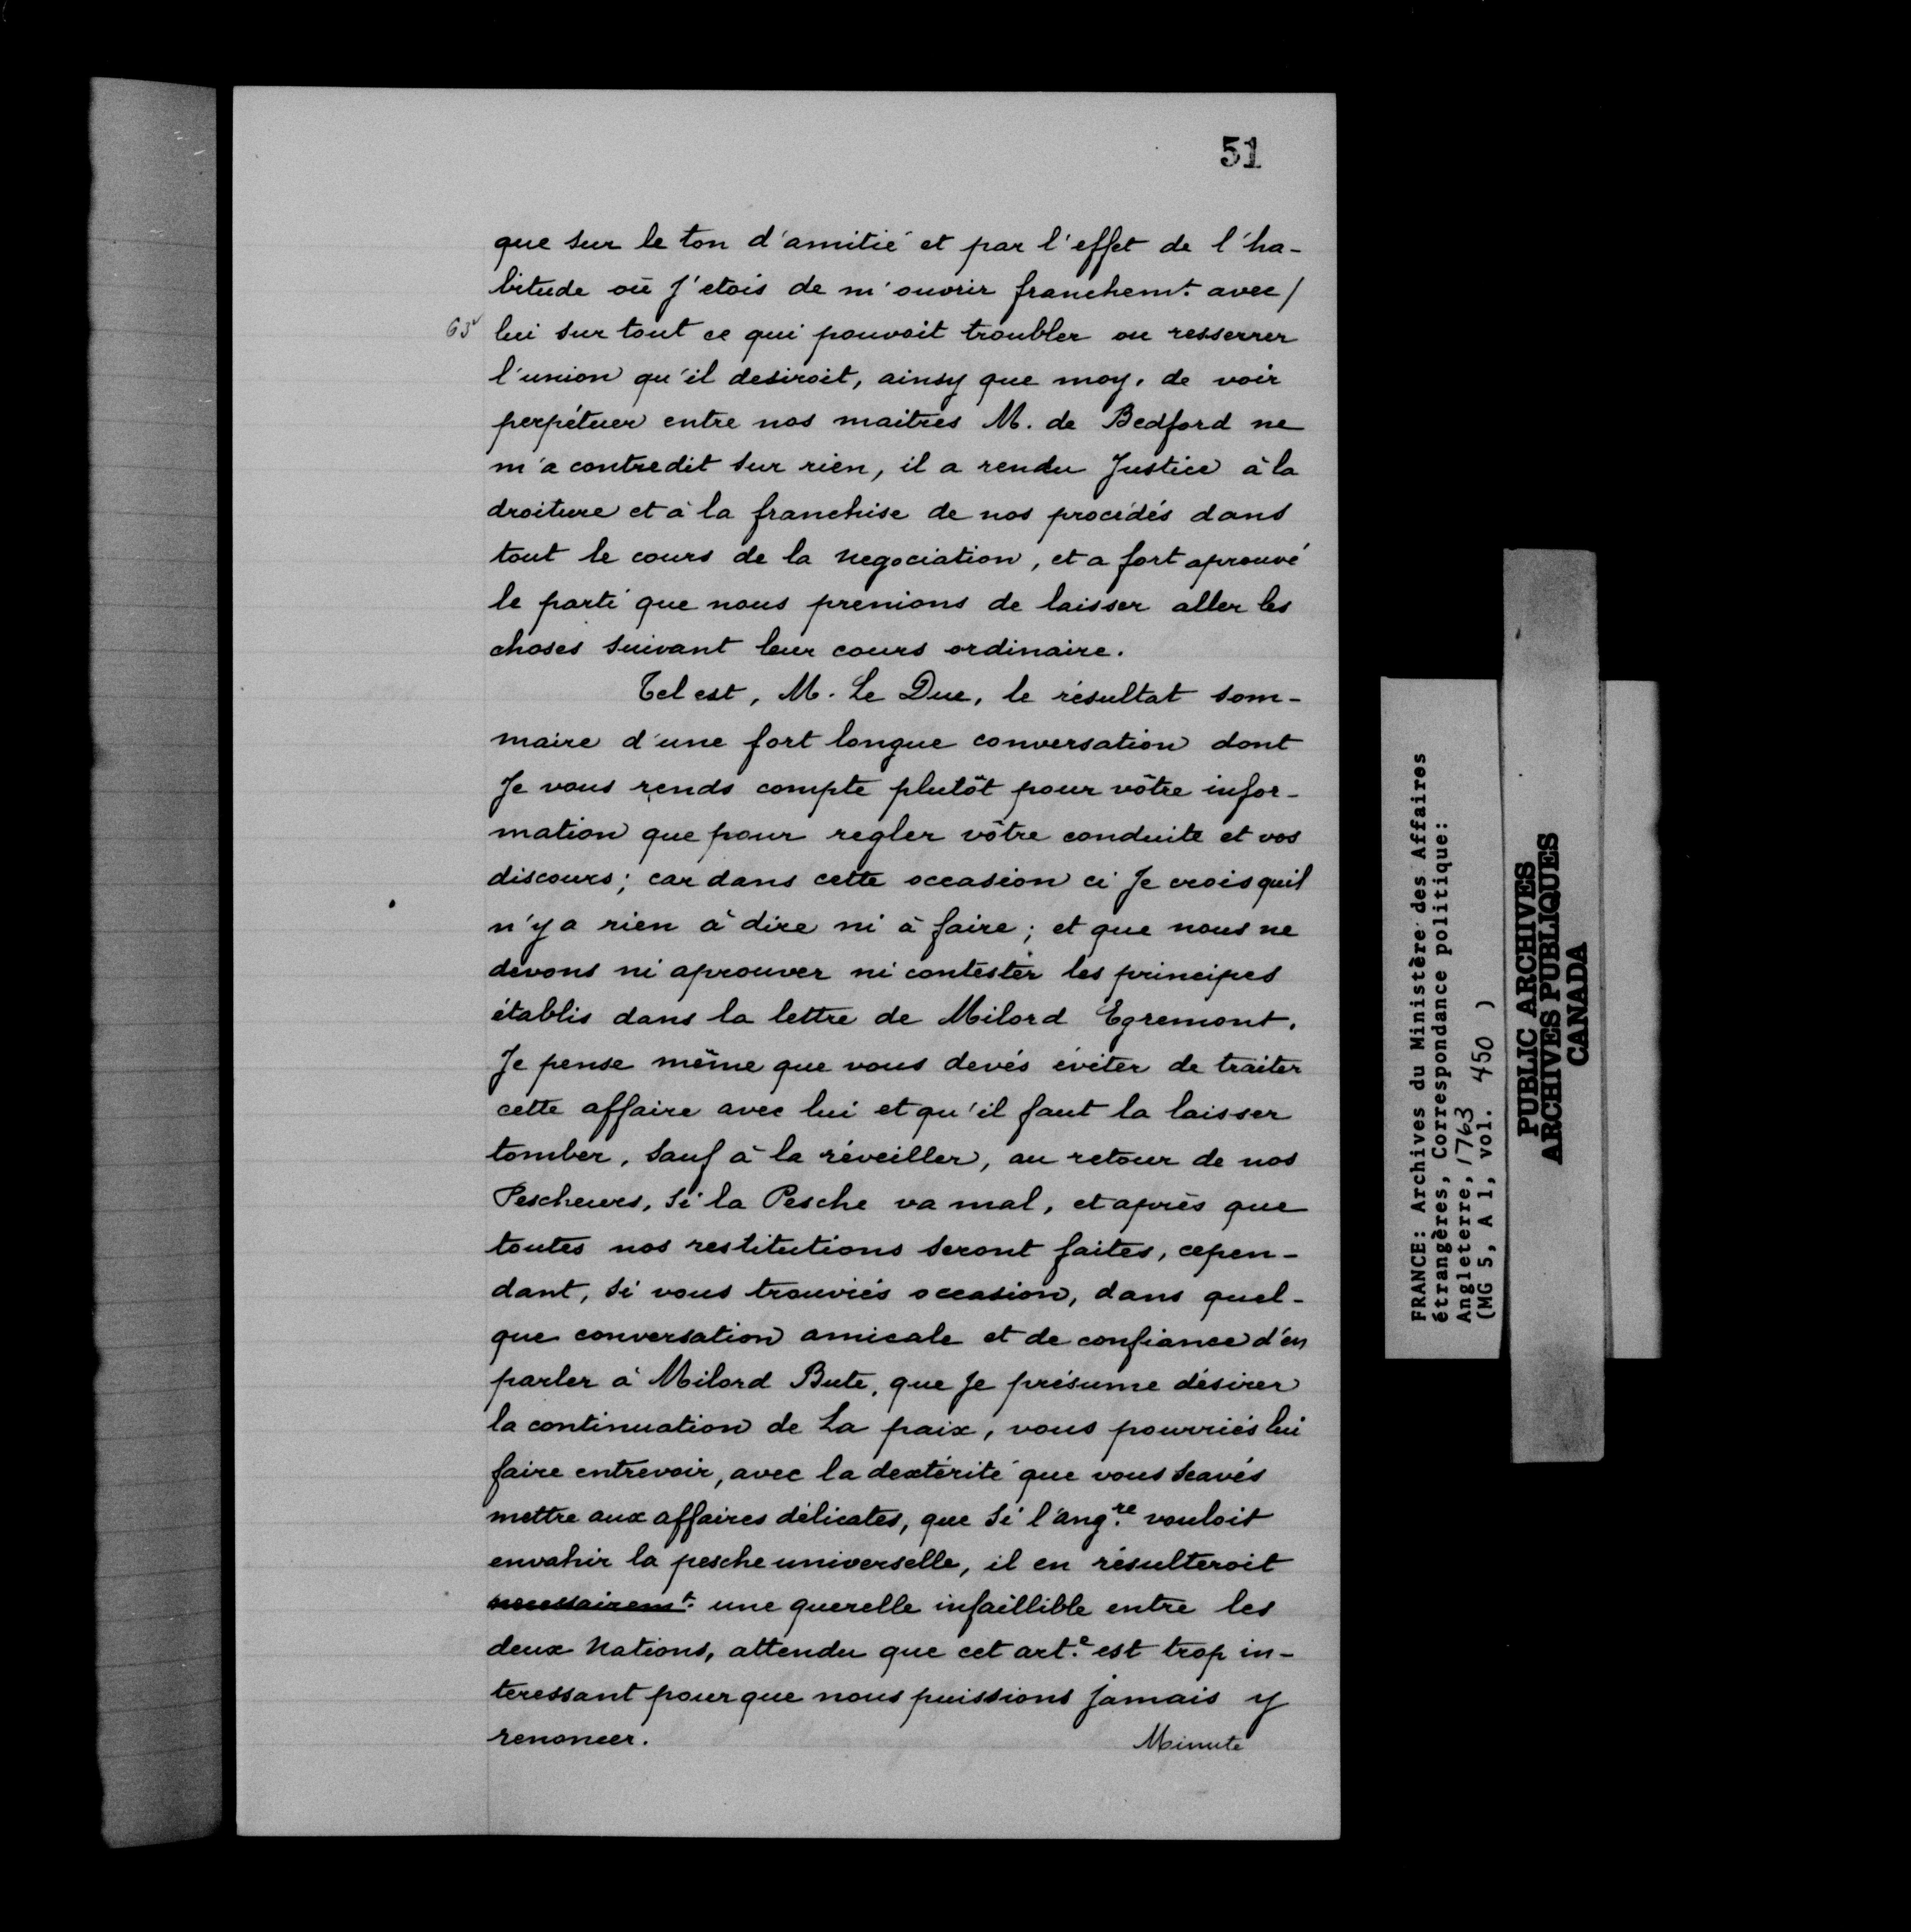 51
que sur le ton d'amitié et par l'effet de l'ha-
bitude où J'etois de m'ouvrir franchemt. avec/
63v lui sur tout ce qui pouvoit troubler ou resserrer
l'union qu'il desiroit, ainsy que moy, de voir
perpétuer entre nos maitres M. de Bedford ne
m'a contredit sur rien, il a rendu Justice à la
droiture et à la franchise de nos procédés dans
tout le cours de la Negociation, et a fort aprouvé
le parti que nous prenions de laisser aller les
choses suivant leur cours ordinaire.
Tel est, M. Le Duc, le résultat som-
maire d'une fort longue conversation dont
Je vous rends compte plutôt pour vôtre infor-
mation que pour regler vôtre conduite et vos
discours; car dans cette occasion ci Je crois quil
n'y a rien à dire ni à faire; et que nous ne
devons ni aprouver ni contester les principes
établis dans la lettre de Milord Egremont.
Je pense même que vous devés éviter de traiter
cette affaire avec lui et qu'il faut la laisser
tomber, sauf à la réveiller, au retour de nos
Pescheurs, si la Pesche va mal, et après que
toutes nos restitutions seront faites, cepen-
dant, si vous trouviés occasion, dans quel-
que conversation amicale et de confiance d'en
parler à Milord Bute, que Je présume désirer
la continuation de La paix, vous pourriés lui
faire entrevoir, avec la dextérité que vous scavés
mettre aux affaires délicates, que si l'ang.re vouloit
envahir la pesche universelle, il en résulteroit
necessairemt. une querelle infaillible entre les
deux Nations, attendu que cet art.e est trop in-
teressant pour que nous puissions Jamais y
renoncer.
Minute
FRANCE: Archives du Ministère des Affaires
étrangères, Correspondance politique:
Angleterre, 1763
(MG 5, A 1, vol. 450 )
PUBLIC ARCHIVES
ARCHIVES PUBLIQUES
CANADA